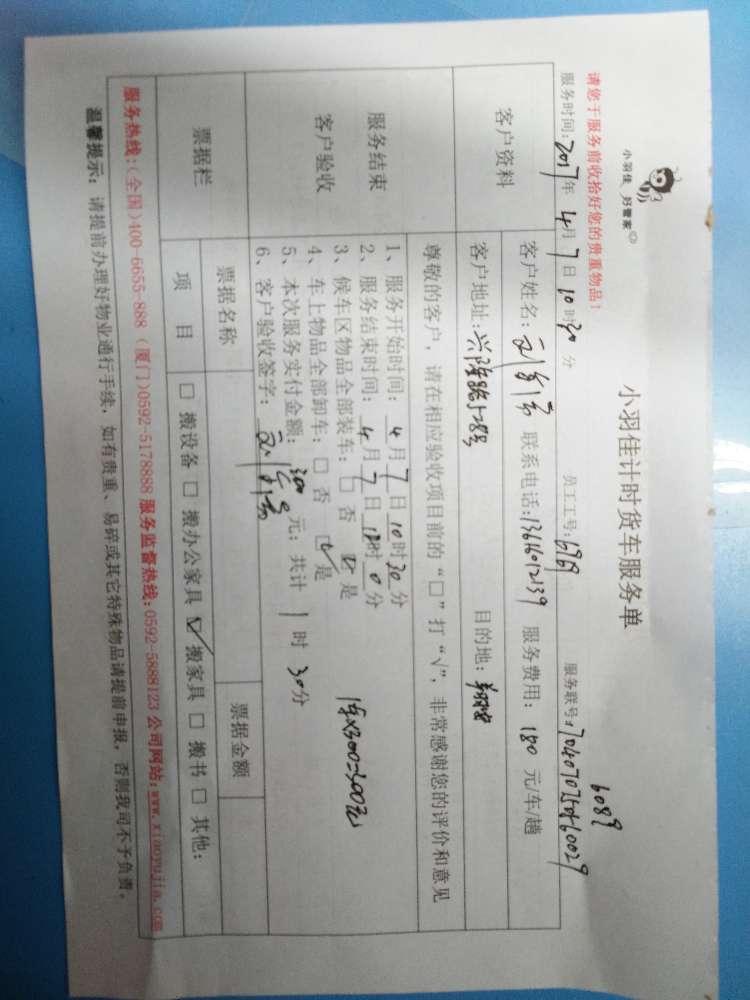 小羽佳 好管家
小羽佳计时货车服务单
6089
请您于服务前收拾好您的贵重物品！
服务时间：2017年 4月 7日 10时30分 员工工号：6969 服务联号：
客户资料
客户姓名： 联系电话：13616012139 服务费用：180 元/车/趟
客户地址： 目的地：
服务结束
客户验收
尊敬的客户，请在相应验收项目前的“□”打“√”，非常感谢您的评价和意见
1、服务开始时间：4月7日10时30分
2、服务结束时间：4月7日 时0分
3、候车区物品全部装车：□ 否 ☑ 是
4、车上物品全部卸车：□ 否 ☑ 是
5、本次服务实付金额：300元；共计 1 时 30分
1车×300=300元
6、客户验收签字：
票据栏
票据名称 票据金额
项 目 □ 搬设备 □ 搬办公家具 ☑ 搬家具 □ 搬书 □ 其他：
服务热线：(全国)400-6655-888 (厦门)0592-5178888 服务监督热线：0592-5888123 公司网站：www.xiaoyujia.com
温馨提示：请提前办理好物业通行手续，如有贵重、易碎或其它特殊物品请提前申报，否则我司不予负责。